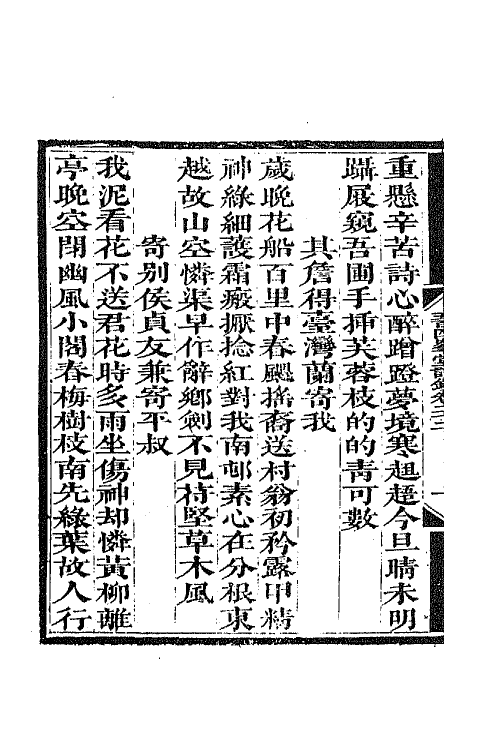 重懸辛苦詩心醉蹭蹬夢境寒趄趑今旦晴未明
躡屐窺吾圃手插芙蓉枝的的青可數
其詹得臺灣蘭寄我
歲晚花船百里中春颸搖裔送村翁初矜露甲精
神綠細護霜瘢擫捻紅對我南邨素心在分根東
越故山空憐渠早作辭鄉劍不見枯堅草木風
寄別侯貞友兼寄平叔
我泥看花不送君花時多雨坐傷神却憐黃柳離
亭晚空閉幽風小閣春梅樹枝南先綠葉故人行